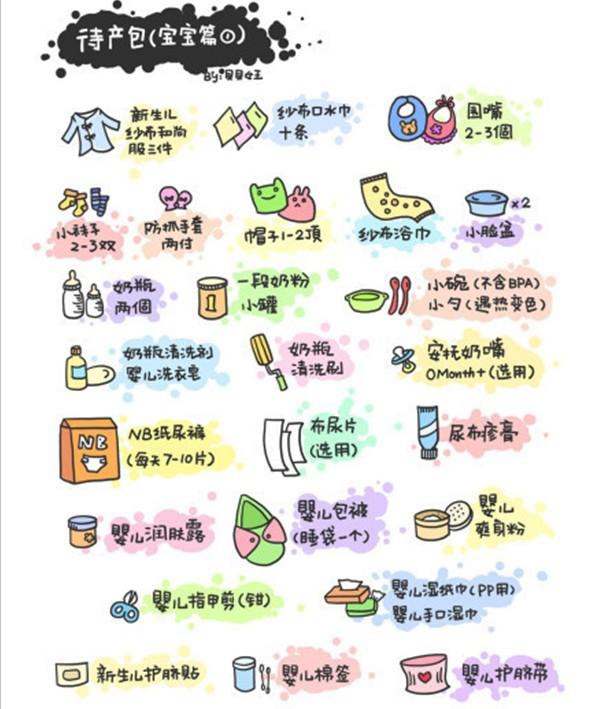 待产包(宝宝篇①)
By:贝贝女王
新生儿
纱布和尚
服三件
纱布口水巾
十条
围嘴
2-3個
小袜子
2-3双
防抓手套
两付
帽子1-2顶
纱布浴巾
×2
小脸盆
奶瓶
两個
一段奶粉
小罐
1
小碗(不含BPA)
小勺(遇热变色)
奶瓶清洗剂
婴儿洗衣皂
奶瓶
清洗刷
安抚奶嘴
0Month+(选用)
NB
NB纸尿裤
(每天7-10片)
布尿片
(选用)
尿布疹膏
婴儿润肤露
婴儿包被
(睡袋一个)
婴儿
爽身粉
婴儿指甲剪(钳)
婴儿湿纸巾(PP用)
婴儿手口湿巾
新生儿护脐贴
婴儿棉签
婴儿护脐带